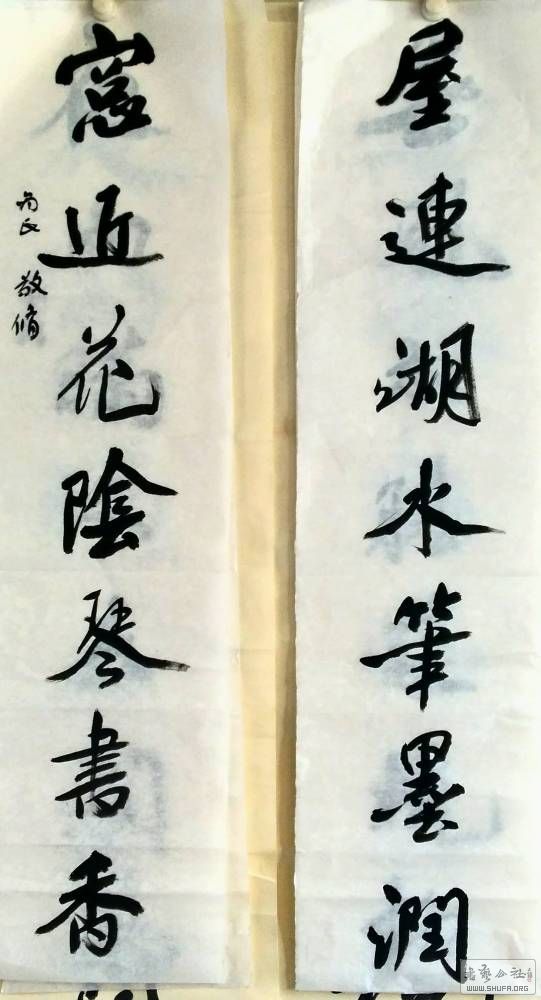 屋連湖水筆墨潤
窓近花陰琴書香
敬脩
書藝公社
WWW.SHUFA.ORG